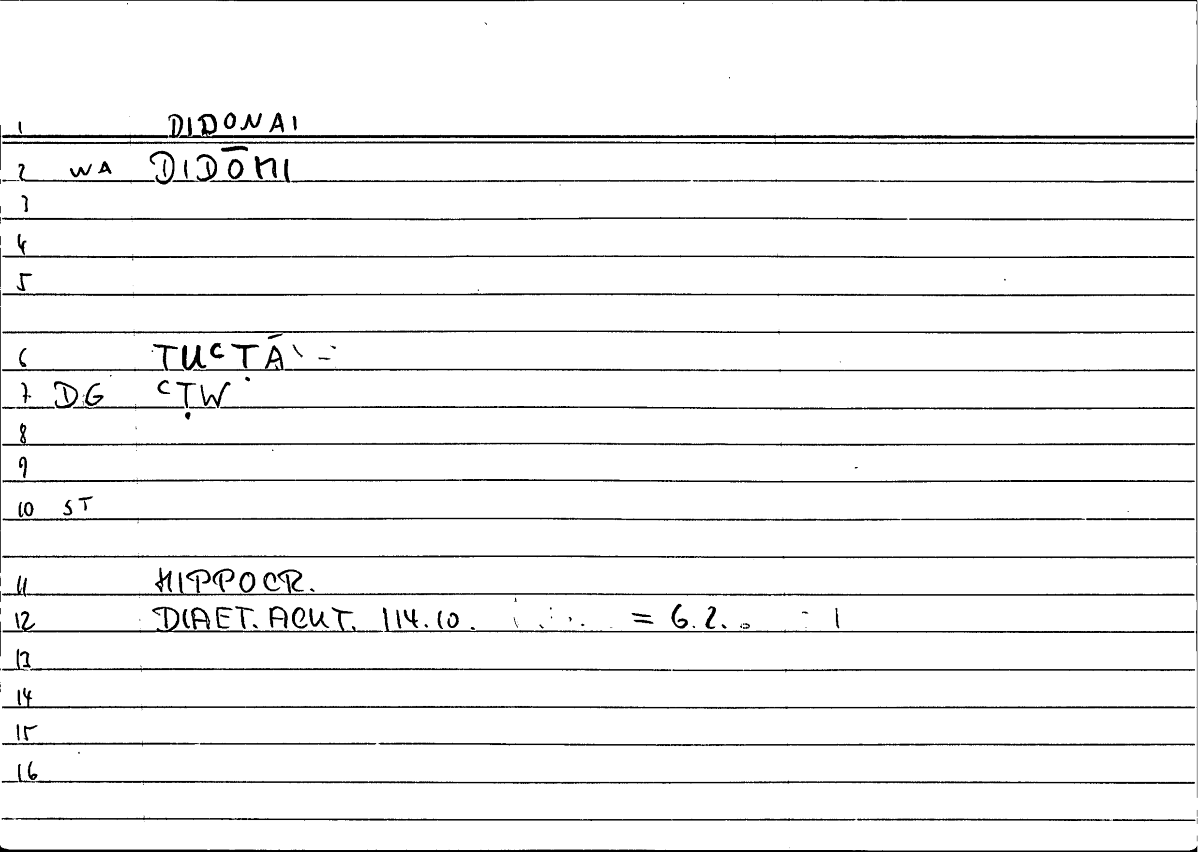 1 DIDONAI
2 WA DIDŌMI
3
4
5
6
7 DG
8
9
10 ST
11 HIPPOCR.
12 DIAET. ACUT. 114.10. = 6.2.
13
14
15
16